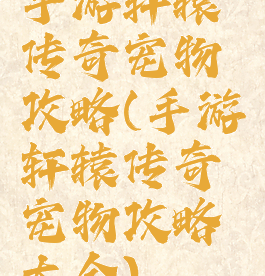 手游轩辕
传奇宠物
攻略(手游
轩辕传奇
宠物攻略
大全)